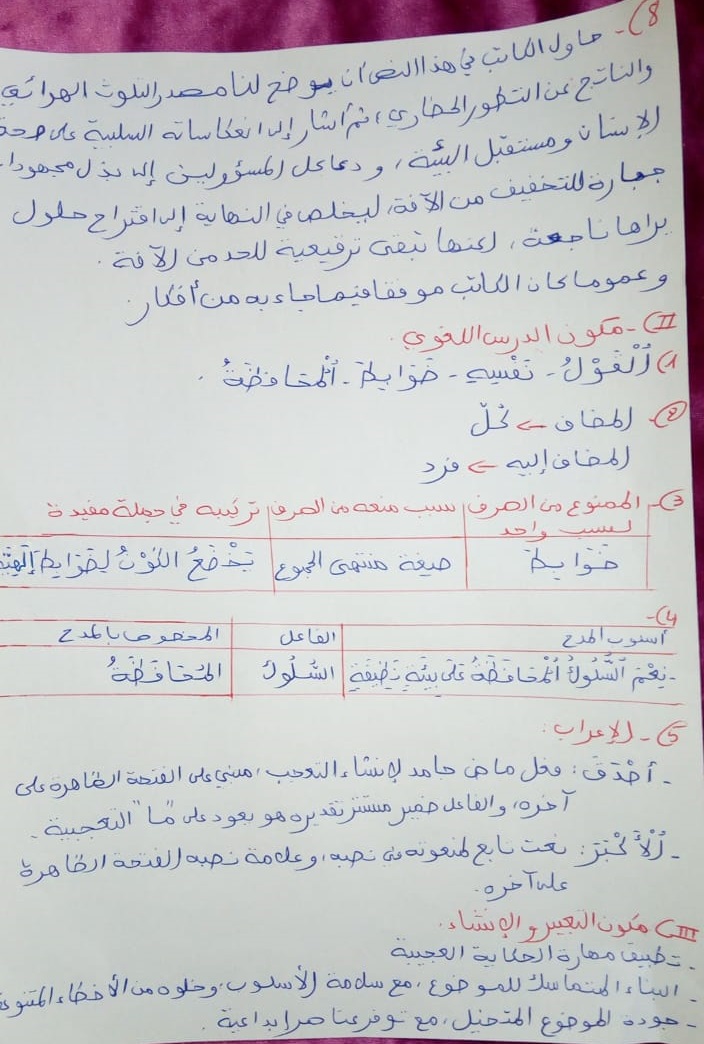 8)- حاول الكاتب في هذا النص أن يوضح لنا مصدر التلوث الهوائي
والناتج عن التطور الحضاري، ثم أشار إلى انعكاساته السلبية على صحة
الإنسان ومستقبل البيئة، ودعا كل المسؤولين إلى بذل مجهودات
جبارة للتخفيف من الآفة، ليخلص في النهاية إلى اقتراح حلول
يراها ناجعة، لكنها تبقى ترقيعية للحد من الآفة.
وعموما كان الكاتب موفقا فيما جاء به من أفكار.
II)- مكون الدرس اللغوي.
1) اَلْقَوْلُ - نَفْسِهِ - ضَوَابِطَ - اَلْمُحَافَظَةُ.
2)- المضاف ← كُلّ
المضاف إليه ← فرد
3)- الممنوع من الصرف لسبب واحد | سبب منعه من الصرف | تركيبه في جملة مفيدة
ضَوَابِطَ | صيغة منتهى الجموع | يَخْضَعُ الكَوْنُ لِضَوَابِطَ إِلَهِيَّة
4)-
أسلوب المدح | الفاعل | المخصوص بالمدح
- نِعْمَ اَلسُّلُوكُ اَلْمُحَافَظَةُ عَلَى بِيئَةٍ نَظِيفَةٍ | السُّلُوكُ | المُحَافَظَةُ
5)- الإعراب:
- أَصْدَقَ: فعل ماض جامد لإنشاء التعجب، مبني على الفتحة الظاهرة على
آخره، والفاعل ضمير مستتر تقديره هو يعود على "ما" التعجبية.
- اَلْأَكْبَرَ: نعت تابع لمنعوته في نصبه، وعلامة نصبه الفتحة الظاهرة
على آخره.
III) مكون التعبير والإنشاء.
- تطبيق مهارة الحكاية العجيبة
- البناء المتماسك للموضوع، مع سلامة الأسلوب، وخلوه من الأخطاء المتنوعة
- جودة الموضوع المتخيل، مع توفر عناصر إبداعية.